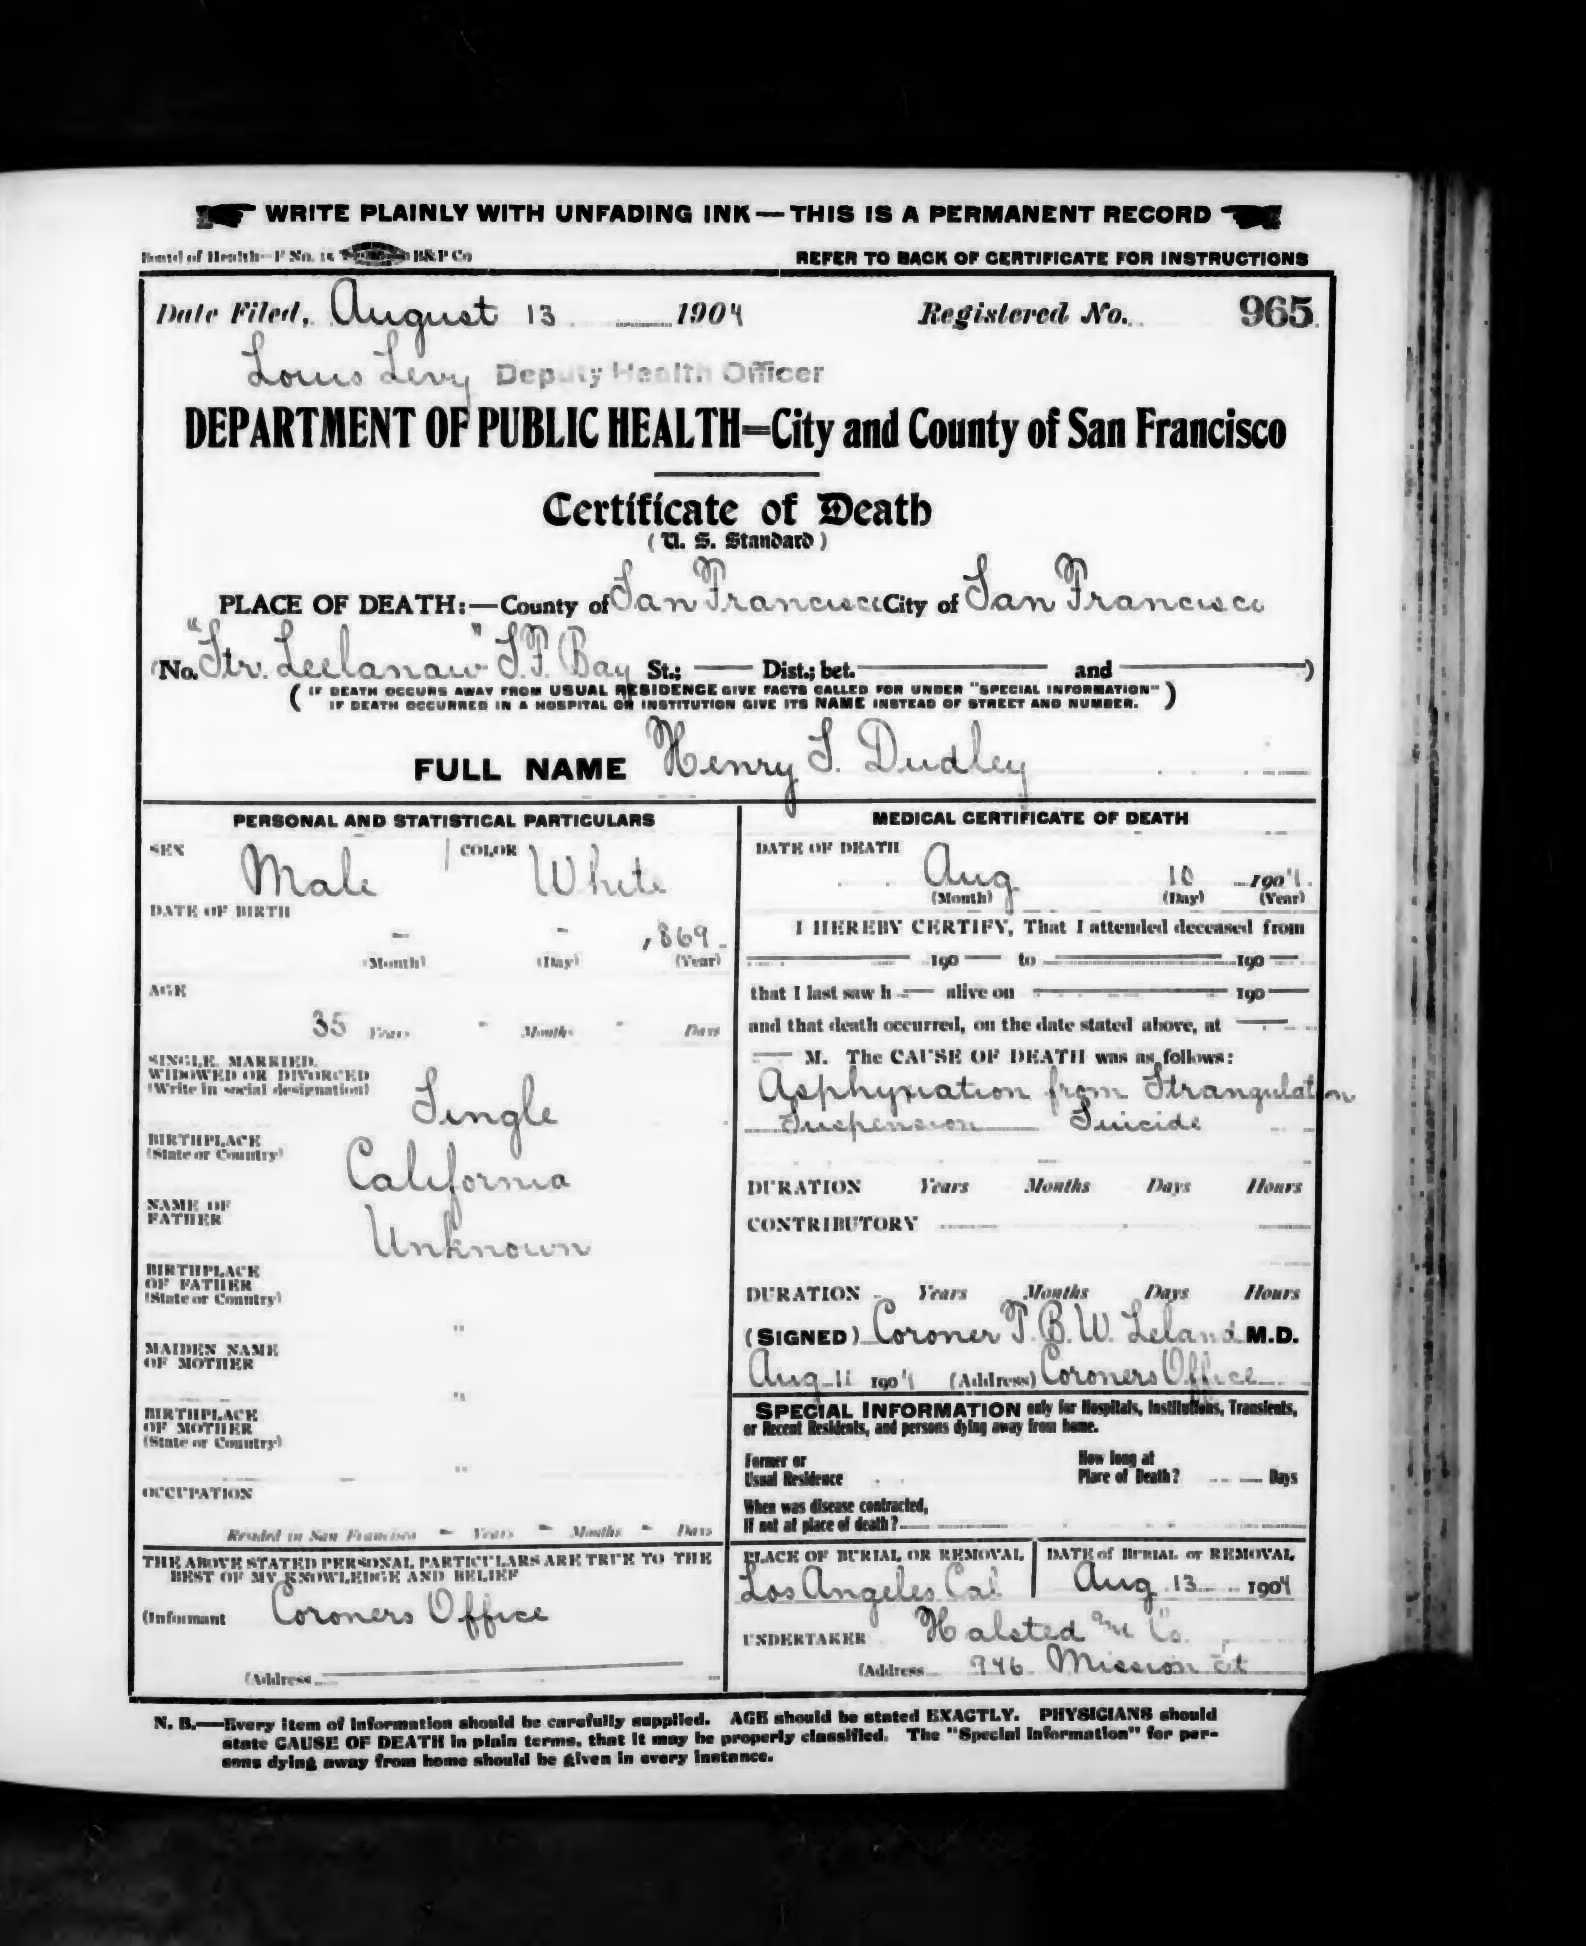 WRITE PLAINLY WITH UNFADING INK — THIS IS A PERMANENT RECORD
Board of Health—F No. 15 B&P Co
REFER TO BACK OF CERTIFICATE FOR INSTRUCTIONS
Date Filed, August 13 1904 Registered No. 965
Louis Levy Deputy Health Officer
DEPARTMENT OF PUBLIC HEALTH=City and County of San Francisco
Certificate of Death
(U. S. Standard)
PLACE OF DEATH:—County of San Francisco City of San Francisco
(No. "Str. Leelanaw" S.F. Bay St.; Dist.; bet. and )
(IF DEATH OCCURS AWAY FROM USUAL RESIDENCE GIVE FACTS CALLED FOR UNDER "SPECIAL INFORMATION"
IF DEATH OCCURRED IN A HOSPITAL OR INSTITUTION GIVE ITS NAME INSTEAD OF STREET AND NUMBER.)
FULL NAME Henry S. Dudley
PERSONAL AND STATISTICAL PARTICULARS
SEX Male COLOR White
DATE OF BIRTH
- - 1869
(Month) (Day) (Year)
AGE
35 Years " Months " Days
SINGLE, MARRIED,
WIDOWED OR DIVORCED
(Write in social designation)
Single
BIRTHPLACE
(State or Country)
California
NAME OF
FATHER
Unknown
BIRTHPLACE
OF FATHER
(State or Country)
"
MAIDEN NAME
OF MOTHER
"
BIRTHPLACE
OF MOTHER
(State or Country)
"
OCCUPATION
Resided in San Francisco - Years - Months - Days
THE ABOVE STATED PERSONAL PARTICULARS ARE TRUE TO THE
BEST OF MY KNOWLEDGE AND BELIEF
(Informant Coroners Office
(Address
MEDICAL CERTIFICATE OF DEATH
DATE OF DEATH
Aug 10 1904
(Month) (Day) (Year)
I HEREBY CERTIFY, That I attended deceased from
190 to 190
that I last saw h alive on 190
and that death occurred, on the date stated above, at
M. The CAUSE OF DEATH was as follows:
Asphyxiation from Strangulation
Suspension Suicide
DURATION Years Months Days Hours
CONTRIBUTORY
DURATION Years Months Days Hours
(SIGNED) Coroner T. B. W. Leland M.D.
Aug 11 1904 (Address) Coroners Office
SPECIAL INFORMATION only for Hospitals, Institutions, Transients,
or Recent Residents, and persons dying away from home.
Former or
Usual Residence
How long at
Place of Death? Days
When was disease contracted,
If not at place of death?
PLACE OF BURIAL OR REMOVAL
Los Angeles Cal
DATE of BURIAL or REMOVAL
Aug 13 1904
UNDERTAKER Halsted and Co.
(Address 946 Mission st
N. B.—Every item of information should be carefully supplied. AGE should be stated EXACTLY. PHYSICIANS should
state CAUSE OF DEATH in plain terms, that it may be properly classified. The "Special Information" for per-
sons dying away from home should be given in every instance.